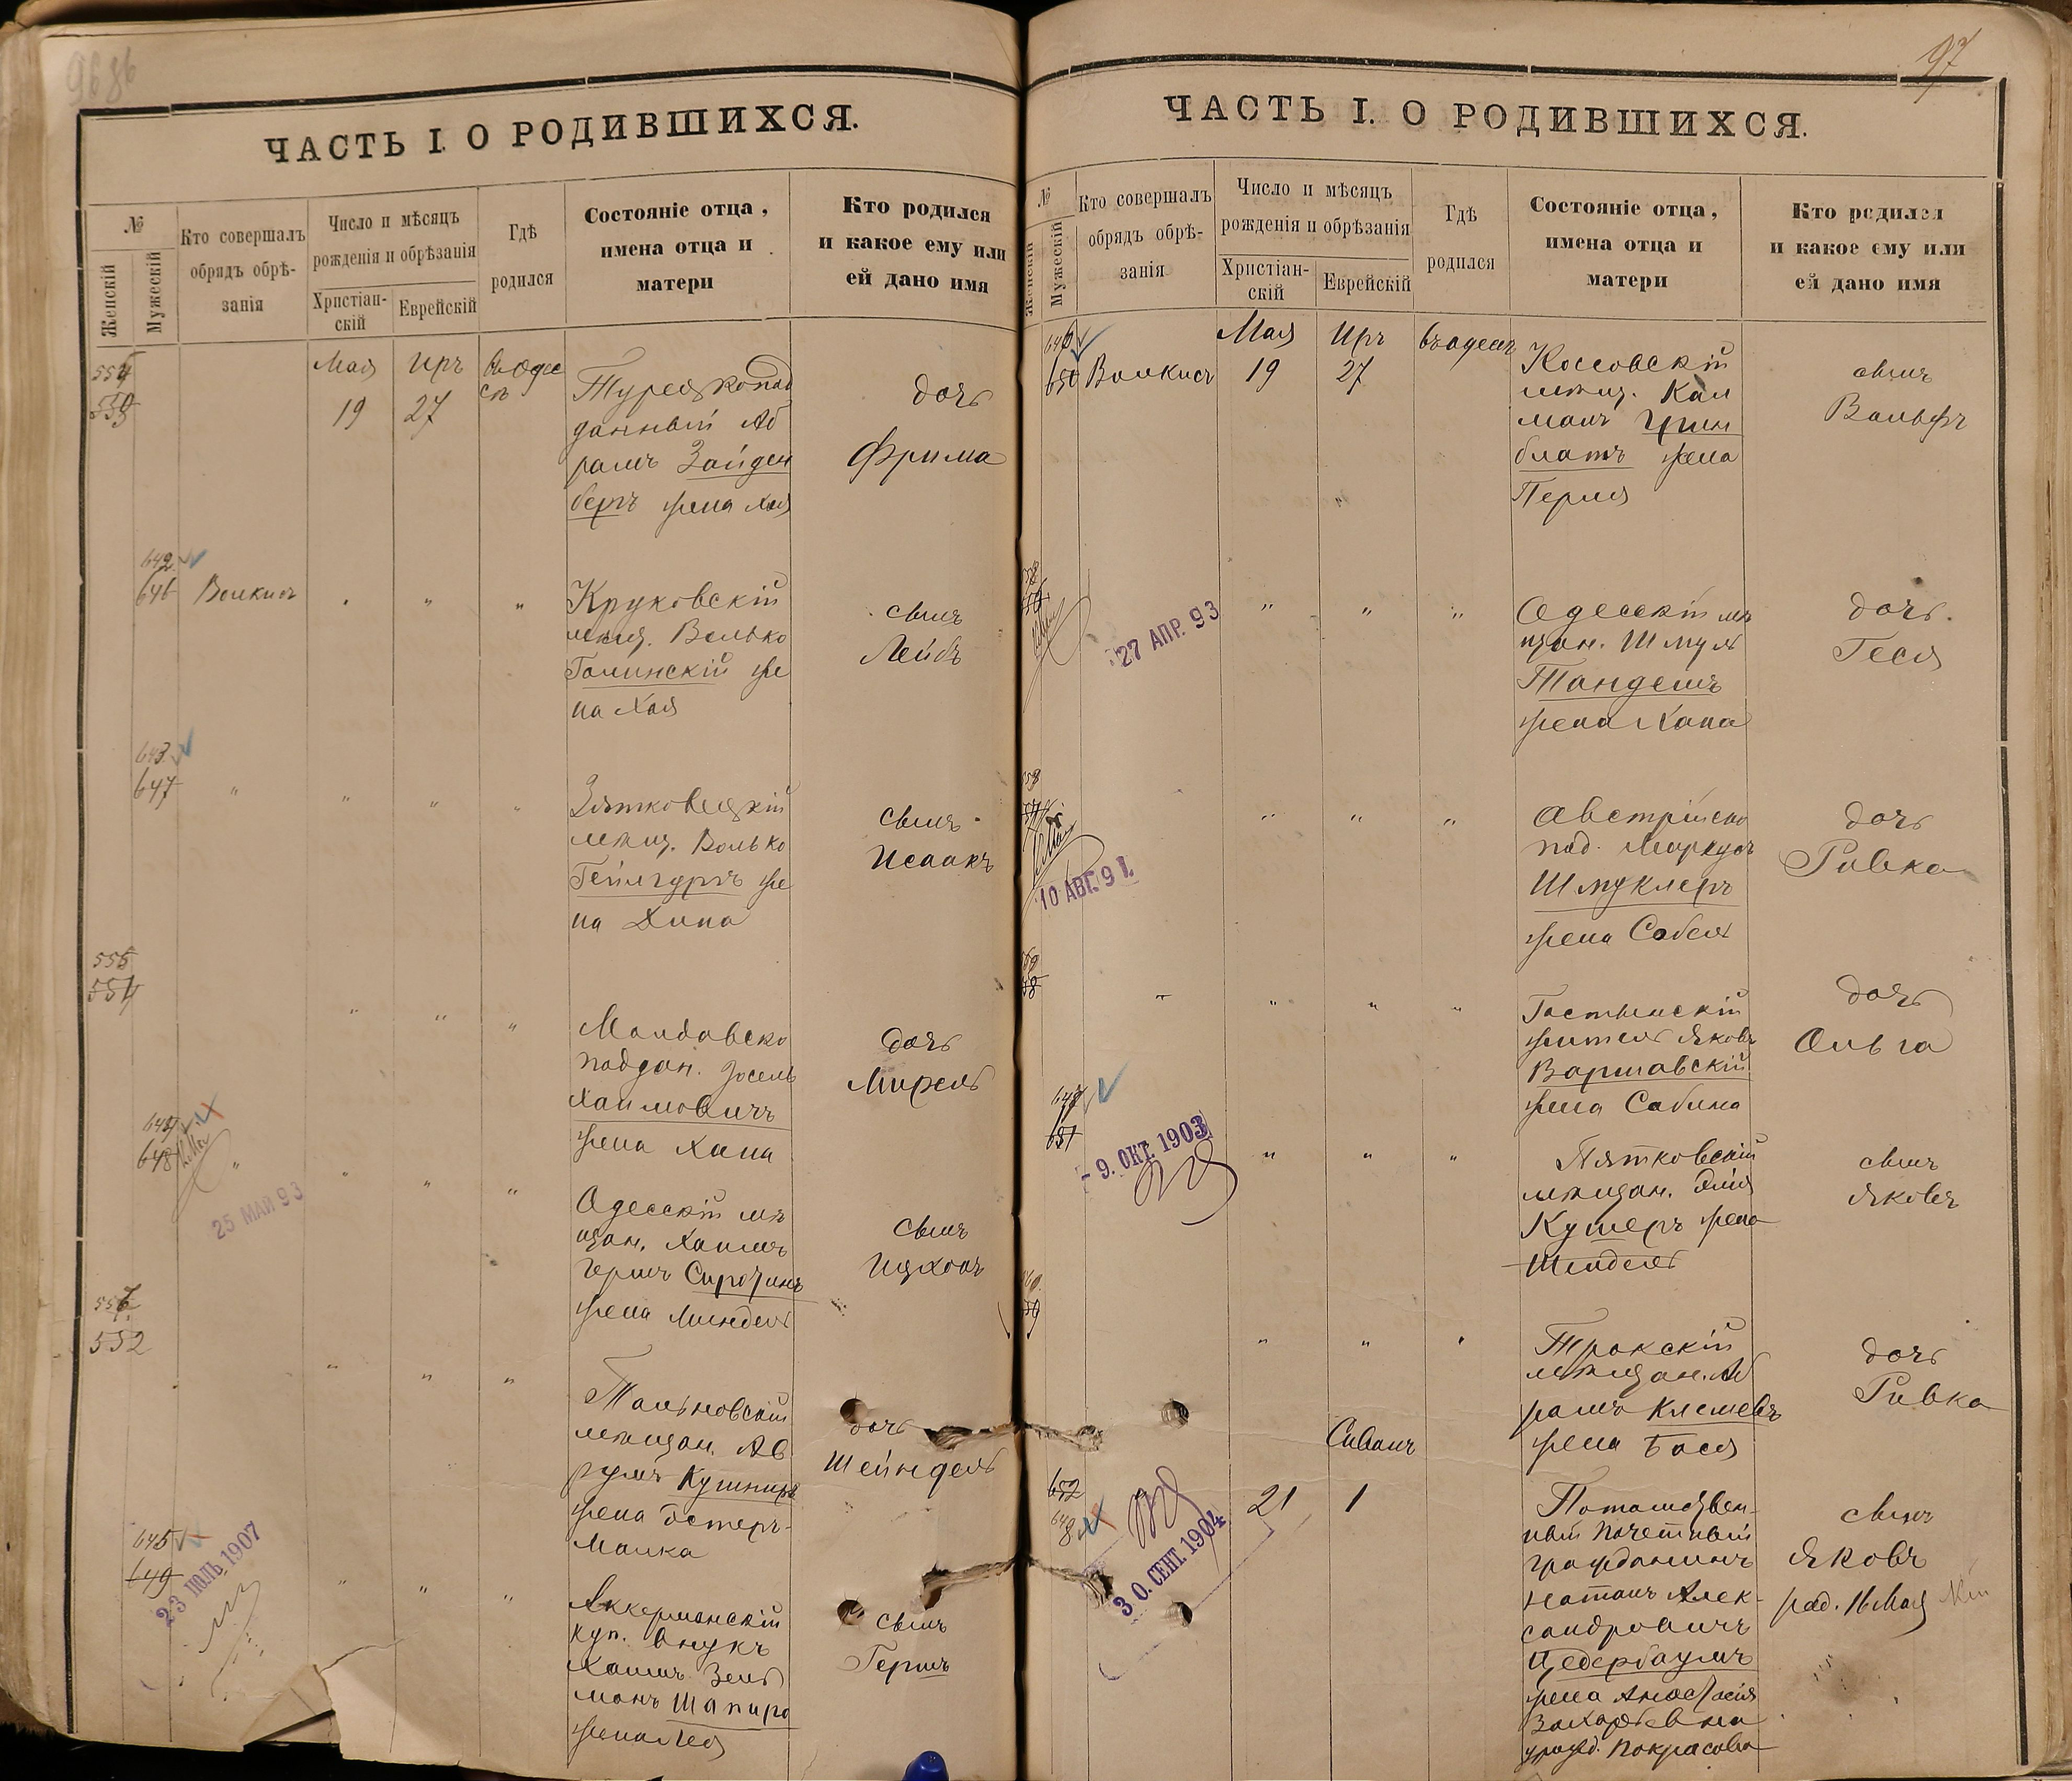 97
ЧАСТЬ I. О РОДИВШИХСЯ.
№
Женскій
Мужескій
Кто совершалъ
обрядъ обрѣ-
занія
Число и мѣсяцъ
рожденія и обрѣзанія
Христіан-
скій
Еврейскій
Гдѣ
родился
Состояніе отца,
имена отца и
матери
Кто родился
и какое ему или
ей дано имя
Мая Иръ въ Одес
сѣ
19 27
Турецкопод
данный Аб
рамъ Зайден
бергъ жена Хая
дочь
Фрима
646 Волкисъ " " "
Круковскій
мѣщ. Волько
Голинскій же
на Хая
сынъ
Лейбъ
643
647 " " " "
мѣщ. Волько
же
на Дина
сынъ
Исаакъ
551
" " "
Молдавско
поддан. Іосель
Хаимовичъ
жена Хана
дочь
Мирель
648 " " " "
25 МАЯ 93
Одесскій мѣ
щан. Хаимъ
Гершъ Сироткинъ
жена Миндель
сынъ
Ицхокъ
552
" " "
Тальновскій
мѣщан. Аб
румъ Кушниръ
жена Эстеръ-
Малка
дочь
Шейндель
645
649
23 ІЮЛЬ 1907
" " "
Аккерманскій
куп. внукъ
Хаимъ Зель
манъ Шапиро
жена Лея
сынъ
Гершъ
ЧАСТЬ I. О РОДИВШИХСЯ.
№
Женскій
Мужескій
Кто совершалъ
обрядъ обрѣ-
занія
Число и мѣсяцъ
рожденія и обрѣзанія
Христіан-
скій
Еврейскій
Гдѣ
родился
Состояніе отца,
имена отца и
матери
Кто родился
и какое ему или
ей дано имя
Мая Иръ въ Одессѣ
650 Волкисъ 19 27
Коссовскій
мѣщ. Кал
манъ Грин
блатъ жена
Перля
сынъ
Вольфъ
27 АПР. 93
" " "
Одесскій мѣ
щан. Шмуль
Тандетъ
жена Хана
дочь
Геся
10 АВГ. 91.
" " "
Австрійско
под. Маркусъ
Шмуклеръ
жена Собель
дочь
Ривка
" " " "
Гостынскій
житель Яковъ
Варшавскій
жена Сабина
дочь
Ольга
651
- 9. ОКТ. 1903
" " "
Пятковскій
мѣщан. Эля
Кушеръ жена
Шендель
сынъ
Яковъ
" " "
Трокскій
мѣщан. Аб
рамъ
жена Бася
дочь
Ривка
Сиванъ
652
21 1
30. СЕНТ. 1904
Потомствен-
ный почетный
гражданинъ
Натанъ Алек-
сандровичъ
Цедербаумъ
жена Анастасія
Захарьевна
урожд. Покрасова
сынъ
Яковъ
род. 16 Мая